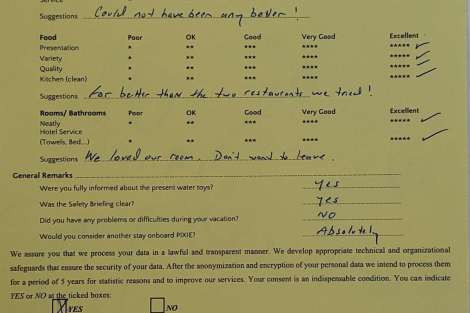 Service
Suggestions Could not have been any better!
Food Poor OK Good Very Good Excellent
Presentation * ** *** **** ***** ✓
Variety * ** *** **** ***** ✓
Quality * ** *** **** ***** ✓
Kitchen (clean) * ** *** **** ***** ✓
Suggestions Far better than the two restaurants we tried!
Rooms/ Bathrooms Poor OK Good Very Good Excellent
Neatly * ** *** **** ***** ✓
Hotel Service
(Towels, Bed...) * ** *** **** ***** ✓
Suggestions We loved our room. Don't want to leave.
General Remarks
Were you fully informed about the present water toys? yes
Was the Safety Briefing clear? yes
Did you have any problems or difficulties during your vacation? NO
Would you consider another stay onboard PIXIE? Absolutely
We assure you that we process your data in a lawful and transparent manner. We develop appropriate technical and organizational
safeguards that ensure the security of your data. After the anonymization and encryption of your personal data we intend to process them
for a period of 5 years for statistic reasons and to improve our services. Your consent is an indispensable condition. You can indicate
YES or NO at the ticked boxes:
X YES NO